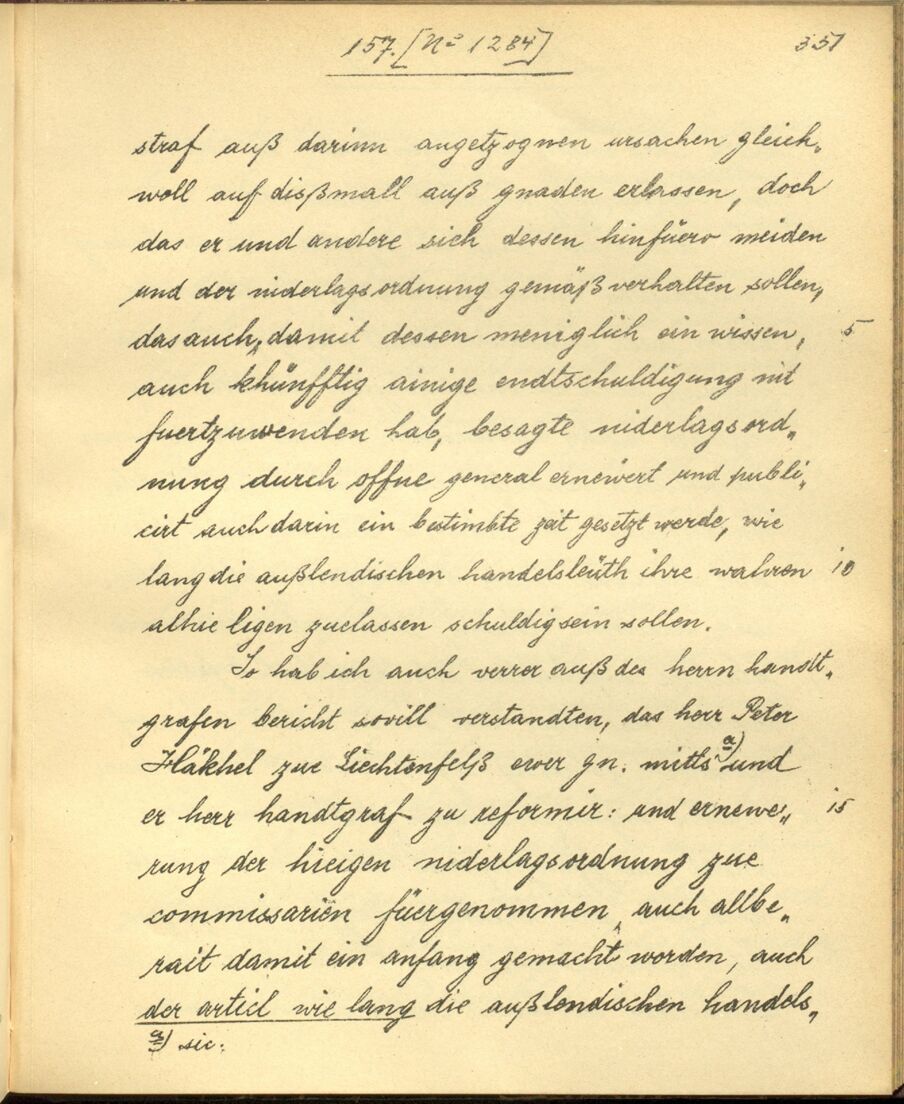 157. [No 1284]
351
straf auß darinn angetzognen ursachen gleich„
woll auf dißmall auß gnaden erlassen, doch
das er und andere sich dessen hinfüero meiden
und der niderlagsordnung gemäß verhalten sollen,
das auch, damit dessen meniglich ein wissen, 5
auch khünfftig ainige endtschuldigung nit
fuertzuwenden hab, besagte niderlagsord„
nung durch offne general ernewert und publi„
cirt auch darin ein bestimbte zeit gesetzt werde, wie
lang die außlendischen handelsleüth ihre wahren 10
alhie ligen zuelassen schuldig sein sollen.
So hab ich auch verrer auß des herrn handt„
grafen bericht sovill verstandten, das herr Peter
Häkhel zue Liechtenfelß ewer gn. mitls a) und
er herr handtgraf zu reformir: und ernewe„ 15
rung der hieigen niderlagsordnung zue
commissarien füergenommen, auch allbe„
rait damit ein anfang gemacht worden, auch
der articl wie lang die außlendischen handels„
a) sic: